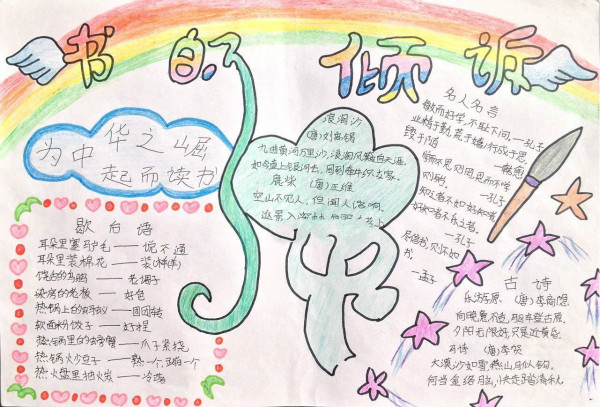 书的倾诉
为中华之崛
起而读书
歇后语
耳朵里塞驴毛——
耳朵里装棉花——装
——老调子
染房的老板——好色
热锅上的——团团转
——爪子紧挠
热锅炒豆子——熟一个,蹦一个
——冷
浪淘沙
(唐)刘禹锡
九曲黄河万里沙,浪淘风簸自天涯。
如今直上银河去,同到牵牛织女家。
鹿柴 (唐)王维
空山不见人,但闻人语响。
返景入深林
名人名言
敏而好学,不耻下问。—孔子
业精于勤,荒于嬉;行成于思,
毁于随 —韩愈
学而不思则罔,思而不学
则殆。 —孔子
知之者不如好知者
好知者不乐之者。
—孔子
尽信书,则不如
书。
—孟子
古诗
乐游原 (唐)李商隐
向晚意不适,驱车登古原。
夕阳无限好,只是近黄昏
马诗 (唐)李贺
大漠沙如雪,燕山月似钩。
何当金络脑,快走踏清秋。